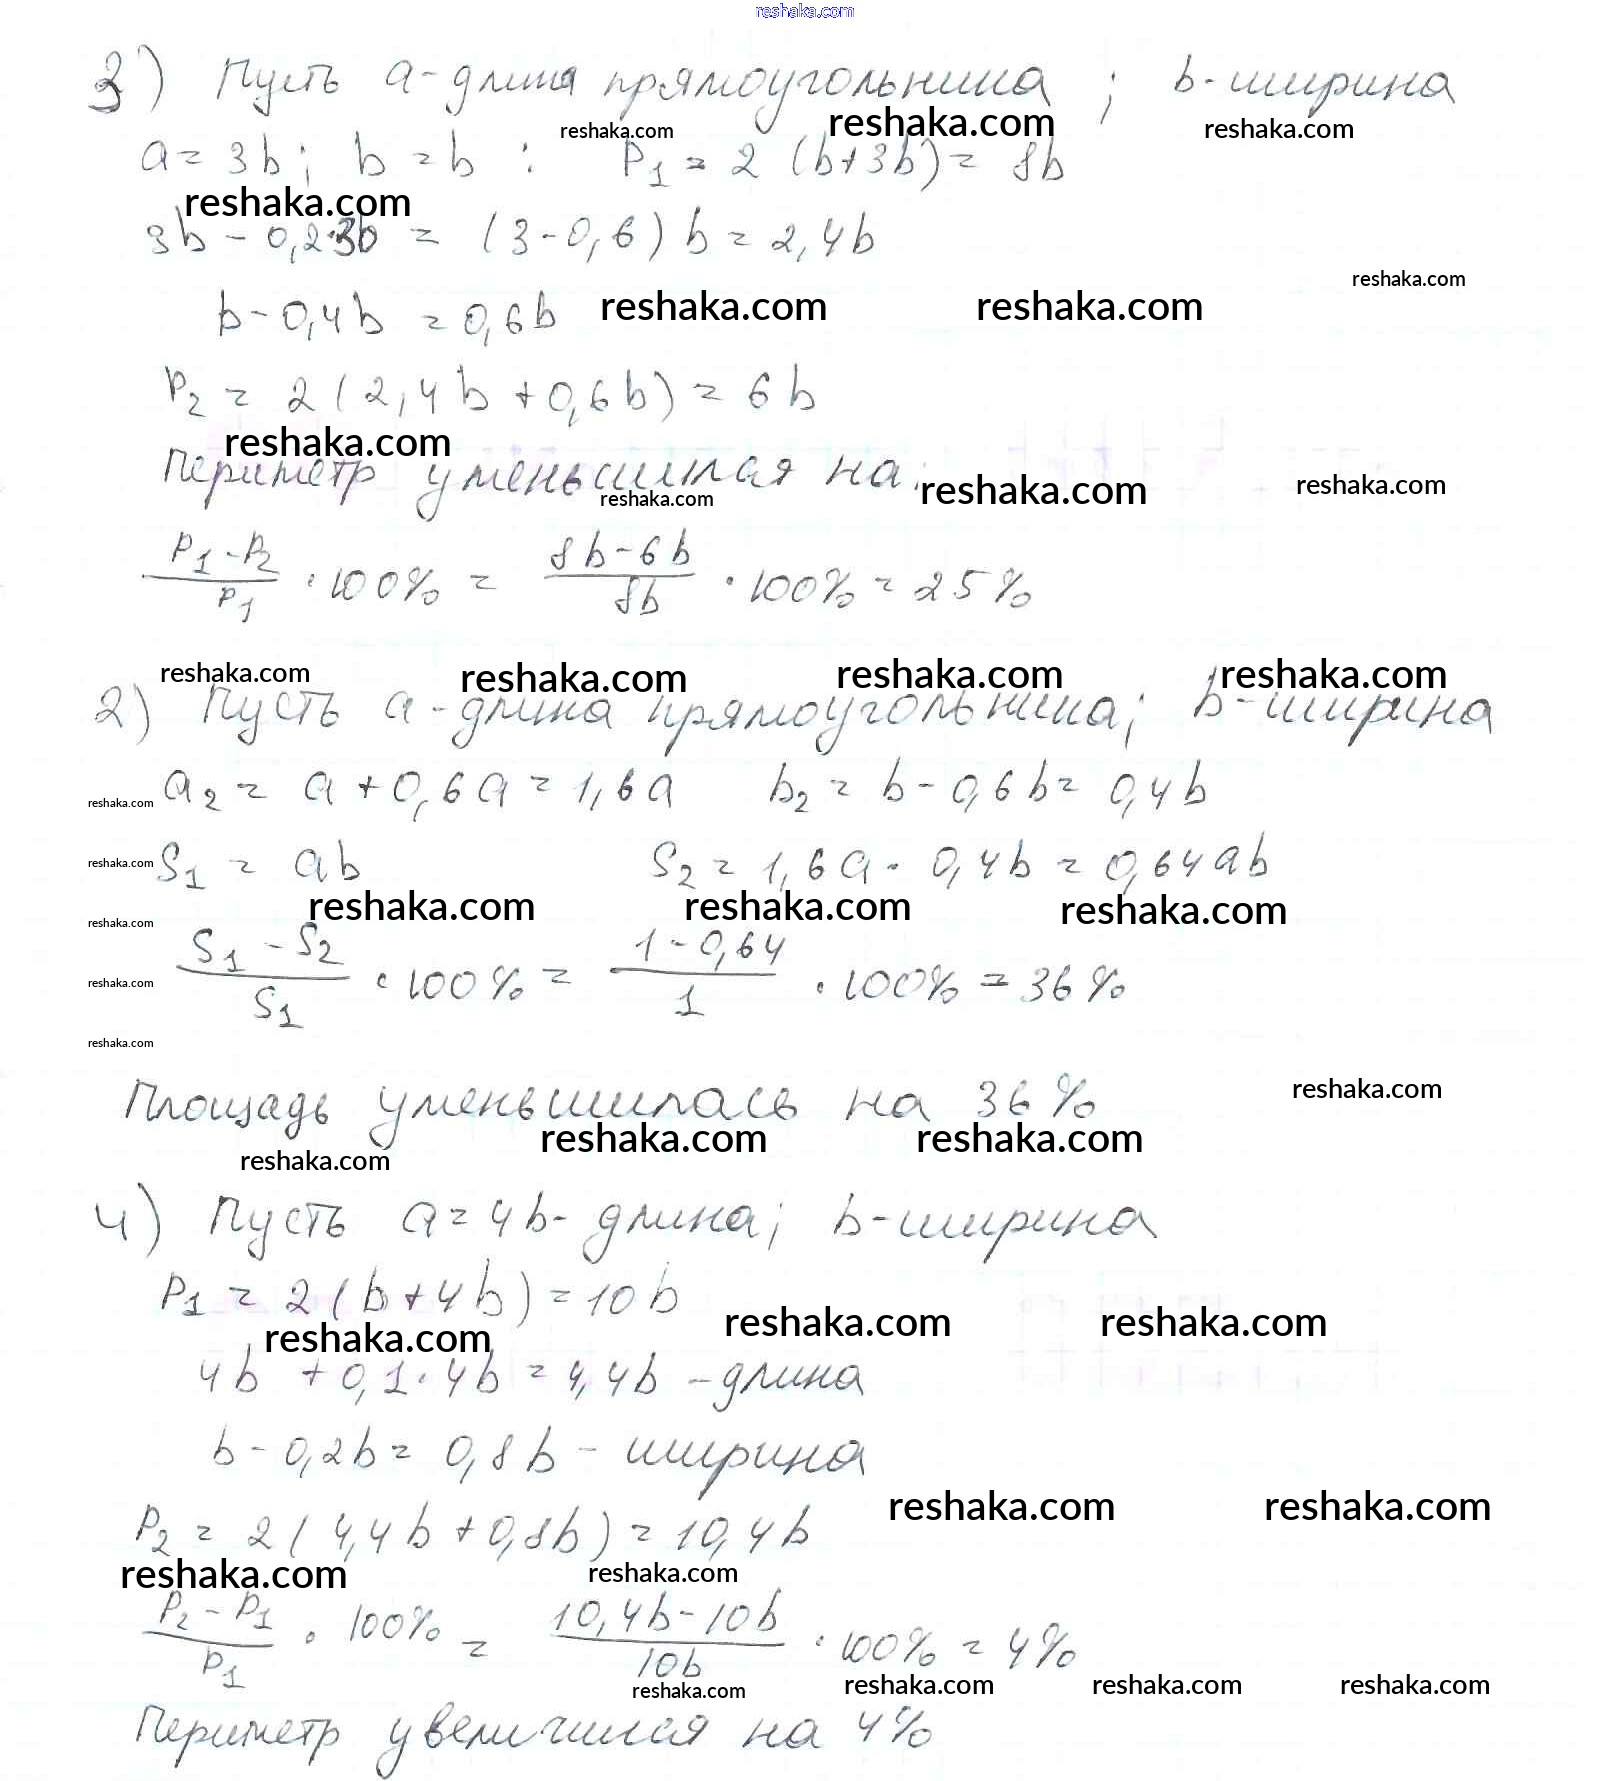 reshaka.com
3) Пусть a-длина прямоугольника; b-ширина
reshaka.com reshaka.com reshaka.com
a = 3b; b = b : P₁ = 2 (b+3b) = 8b
reshaka.com
3b - 0,2·3b = (3-0,6) b = 2,4b
reshaka.com
b - 0,4b = 0,6b reshaka.com reshaka.com
P₂ = 2 (2,4b + 0,6b) = 6b
reshaka.com
Периметр уменьшился на:
reshaka.com reshaka.com reshaka.com
(P₁ - P₂)/P₁ · 100% = (8b-6b)/8b · 100% = 25%
reshaka.com reshaka.com reshaka.com reshaka.com
2) Пусть a-длина прямоугольника; b-ширина
reshaka.com a₂ = a + 0,6a = 1,6a b₂ = b - 0,6b = 0,4b
reshaka.com S₁ = ab S₂ = 1,6a · 0,4b = 0,64ab
reshaka.com reshaka.com reshaka.com
reshaka.com
(S₁ - S₂)/S₁ · 100% = (1-0,64)/1 · 100% = 36%
reshaka.com
reshaka.com
Площадь уменьшилась на 36% reshaka.com
reshaka.com reshaka.com reshaka.com
4) Пусть a = 4b - длина; b-ширина
P₁ = 2 (b+4b) = 10b
reshaka.com reshaka.com reshaka.com
4b + 0,1·4b = 4,4b - длина
b - 0,2b = 0,8b - ширина
reshaka.com reshaka.com
P₂ = 2 (4,4b + 0,8b) = 10,4b
reshaka.com reshaka.com
(P₂ - P₁)/P₁ · 100% = (10,4b-10b)/10b · 100% = 4%
reshaka.com reshaka.com reshaka.com reshaka.com
Периметр увеличился на 4%